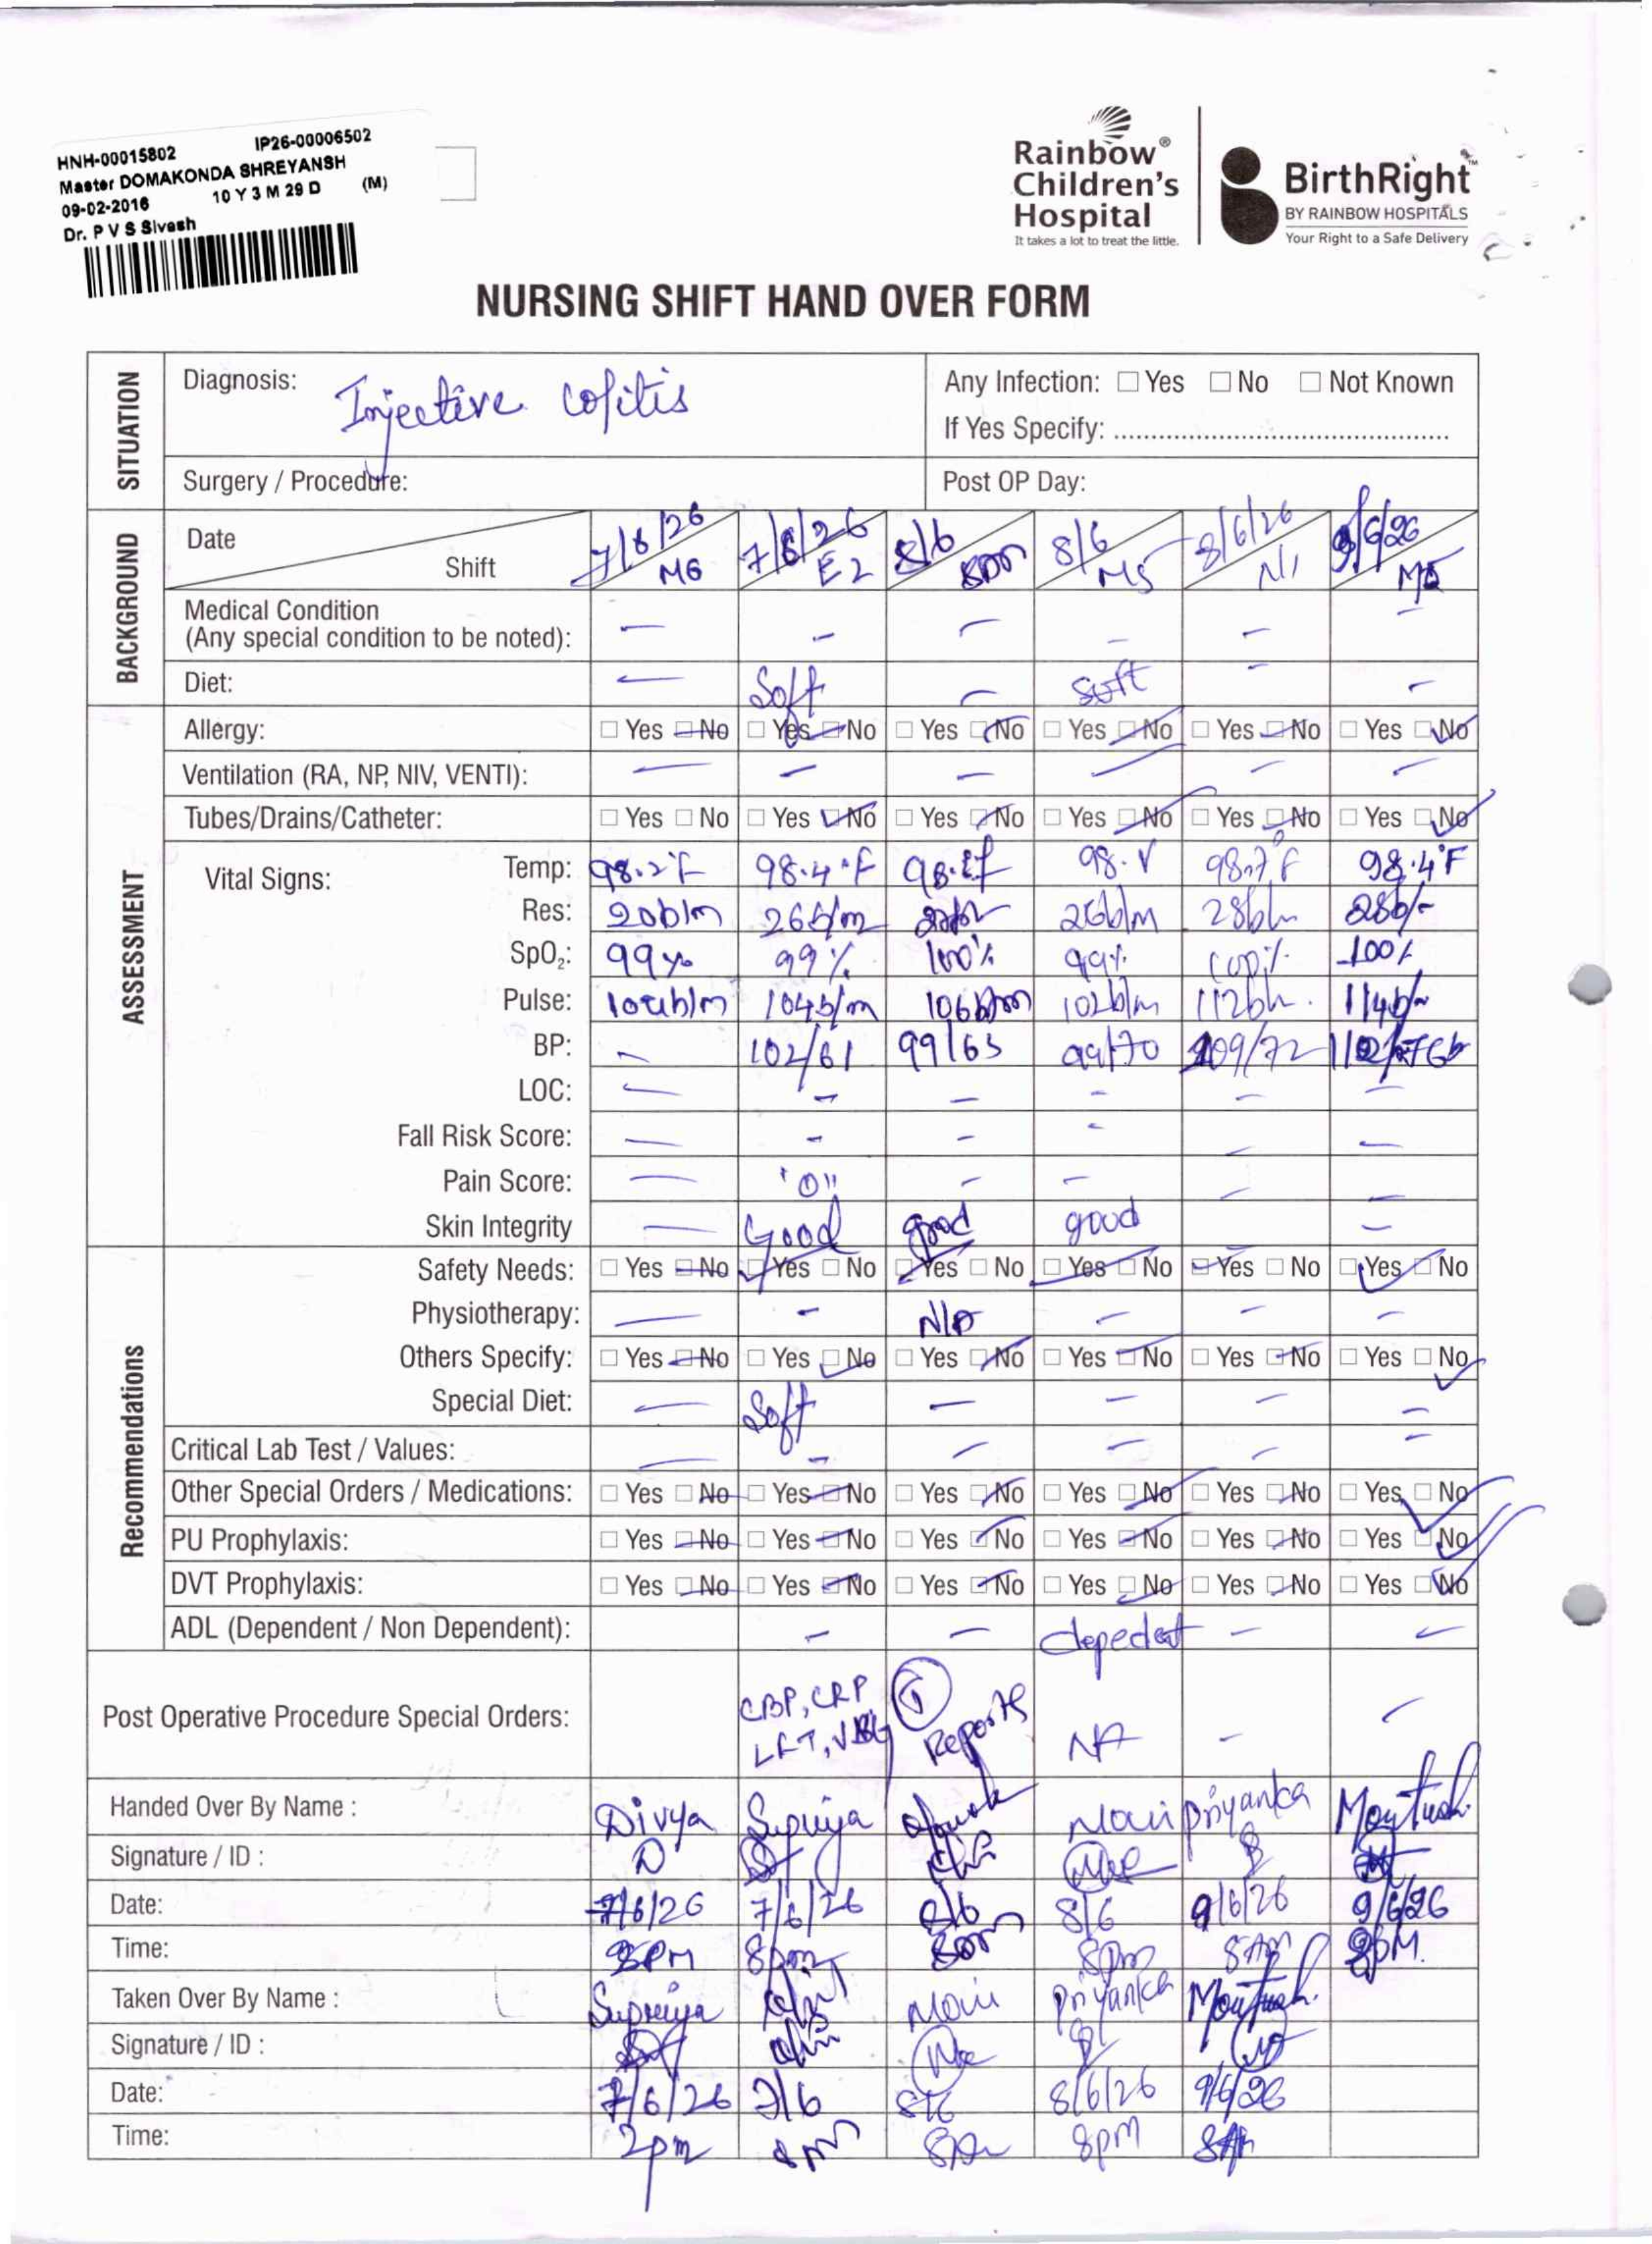 HNH-00015802 IP26-00006502
Master DOMAKONDA SHREYANSH
09-02-2016 10 Y 3 M 29 D (M)
Dr. P V S Sivesh
Rainbow® Children's Hospital
It takes a lot to treat the little.
BirthRight™
BY RAINBOW HOSPITALS
Your Right to a Safe Delivery
NURSING SHIFT HAND OVER FORM
SITUATION
Diagnosis: Injective colitis
Any Infection: ☐ Yes ☐ No ☐ Not Known
If Yes Specify: ..............................................
Surgery / Procedure:
Post OP Day:
BACKGROUND
Date 7/6/26 7/6/26 8/6 8/6 8/6/26 9/6/26
Shift M6 E2 M5 N1
Medical Condition
(Any special condition to be noted): – – – – – –
Diet: – Soft – Soft – –
ASSESSMENT
Allergy: Yes No Yes No Yes No Yes No Yes No Yes No
Ventilation (RA, NP, NIV, VENTI): – – – – – –
Tubes/Drains/Catheter: Yes No Yes No Yes No Yes No Yes No Yes No
Vital Signs:
Temp: 98.2°F 98.4°F 98.7°F 98.4°F
Res: 20b/m 26b/m 26b/m 28b/m 28b/-
SpO₂: 99% 99% 100% 99% 100% 100%
Pulse: 104b/m 106b/m 102b/m 112b/m 114b/m
BP: – 102/61 99/63 99/70 109/72
LOC: – – – – – –
Fall Risk Score: – – – – – –
Pain Score: – "0" – – – –
Skin Integrity – Good good good –
Recommendations
Safety Needs: Yes No Yes No Yes No Yes No Yes No Yes No
Physiotherapy: – – N/A – – –
Others Specify: Yes No Yes No Yes No Yes No Yes No Yes No
Special Diet: – Soft – – – –
Critical Lab Test / Values: – – – – – –
Other Special Orders / Medications: Yes No Yes No Yes No Yes No Yes No Yes No
PU Prophylaxis: Yes No Yes No Yes No Yes No Yes No Yes No
DVT Prophylaxis: Yes No Yes No Yes No Yes No Yes No Yes No
ADL (Dependent / Non Dependent): – – depedent – –
Post Operative Procedure Special Orders: CBP, CRP LFT, VBG Reports NA – –
Handed Over By Name : Divya Supriya priyanka
Signature / ID :
Date: 7/6/26 7/6/26 8/6 8/6 9/6/26 9/6/26
Time: 8pm 8pm 8AM
Taken Over By Name : Supriya Priyanka
Signature / ID :
Date: 7/6/26 8/6/26 9/6/26
Time: 2pm 8pm